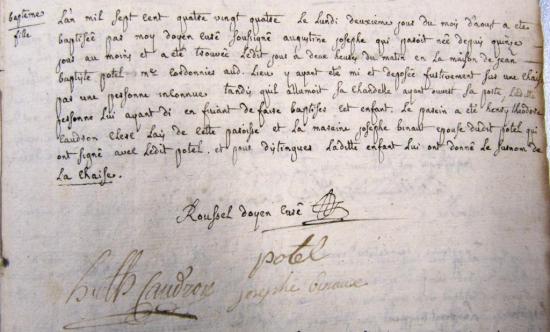 baptême
fille
L'an mil sept cent quatre vingt quatre Le Lundi deuxieme jour du mois d'aoust a eté
baptiseé par moy doyen curé soussigné augustine josephe qui paroit neé depuis quinze
jour au moins et a eté trouveé Ledit jour a deux heures du matin en La maison de jean
baptiste potel mre cordonnier aud. Lieu y ayant eté mi et deposeé furtivement sur une chaise
par une personne inconnue tandis qu'il allumoit sa chandelle ayant ouvert sa porte Laditte
personne Lui ayant di en fuiant de faire baptiser cet enfant. Le parein a eté henry theodore
Caudron Clerc Laic de cette paroisse et La maraine josephe binaut epouse dudit potel qui
ont signé avec Ledit potel. et pour distinguer Laditte enfant Lui ont donné Le surnom de
La chaise.
Roussel doyen Curé
potel
h th Caudron
josephe binaux